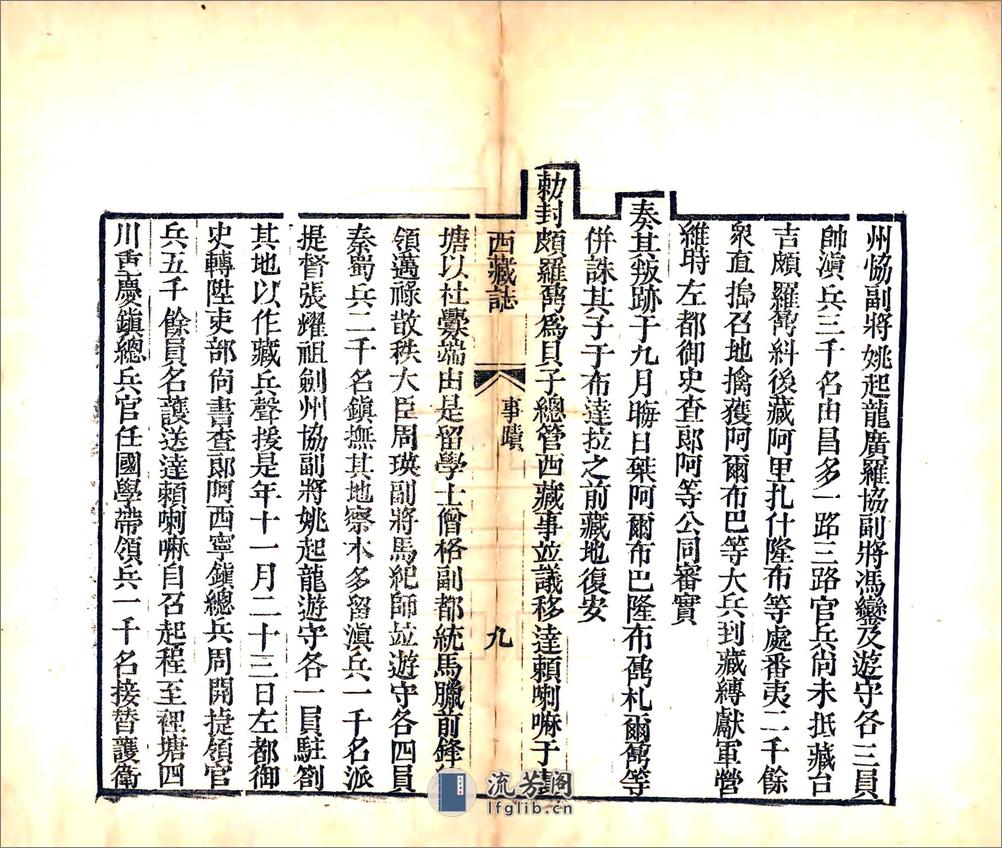 州恊副將姚起龍廣羅協副將馮鑾及遊守各三員
帥滇兵三千名由昌多一路三路官兵尚未抵藏台
吉頗羅鼐糾後藏阿里扎什隆布等處番夷二千餘
衆直搗召地擒獲阿爾布巴等大兵到藏縛獻軍營
維時左都御史查郎阿等公同審實
奏其叛跡于九月晦日桀阿爾布巴隆布鼐札爾鼐等
併誅其子于布達拉之前藏地復安
勅封頗羅鼐為貝子總管西藏事並議移達頼喇嘛于
西藏誌
事蹟
九
塘以杜釁端由是留學士僧格副都統馬臘前鋒
領邁祿故秩大臣周瑛副將馬紀師並遊守各四員
秦蜀兵二千名鎮撫其地察木多留滇兵一千名派
提督張耀祖劍州協副將姚起龍遊守各一員駐劄
其地以作藏兵聲援是年十一月二十三日左都御
史轉陞吏部尚書查郎阿西寧鎮總兵周開捷領官
兵五千餘員名護送達頼喇嘛自召起程至裡塘四
川重慶鎮總兵官任國學帶領兵一千名接替護衛
流芳閣
lfglib.cn